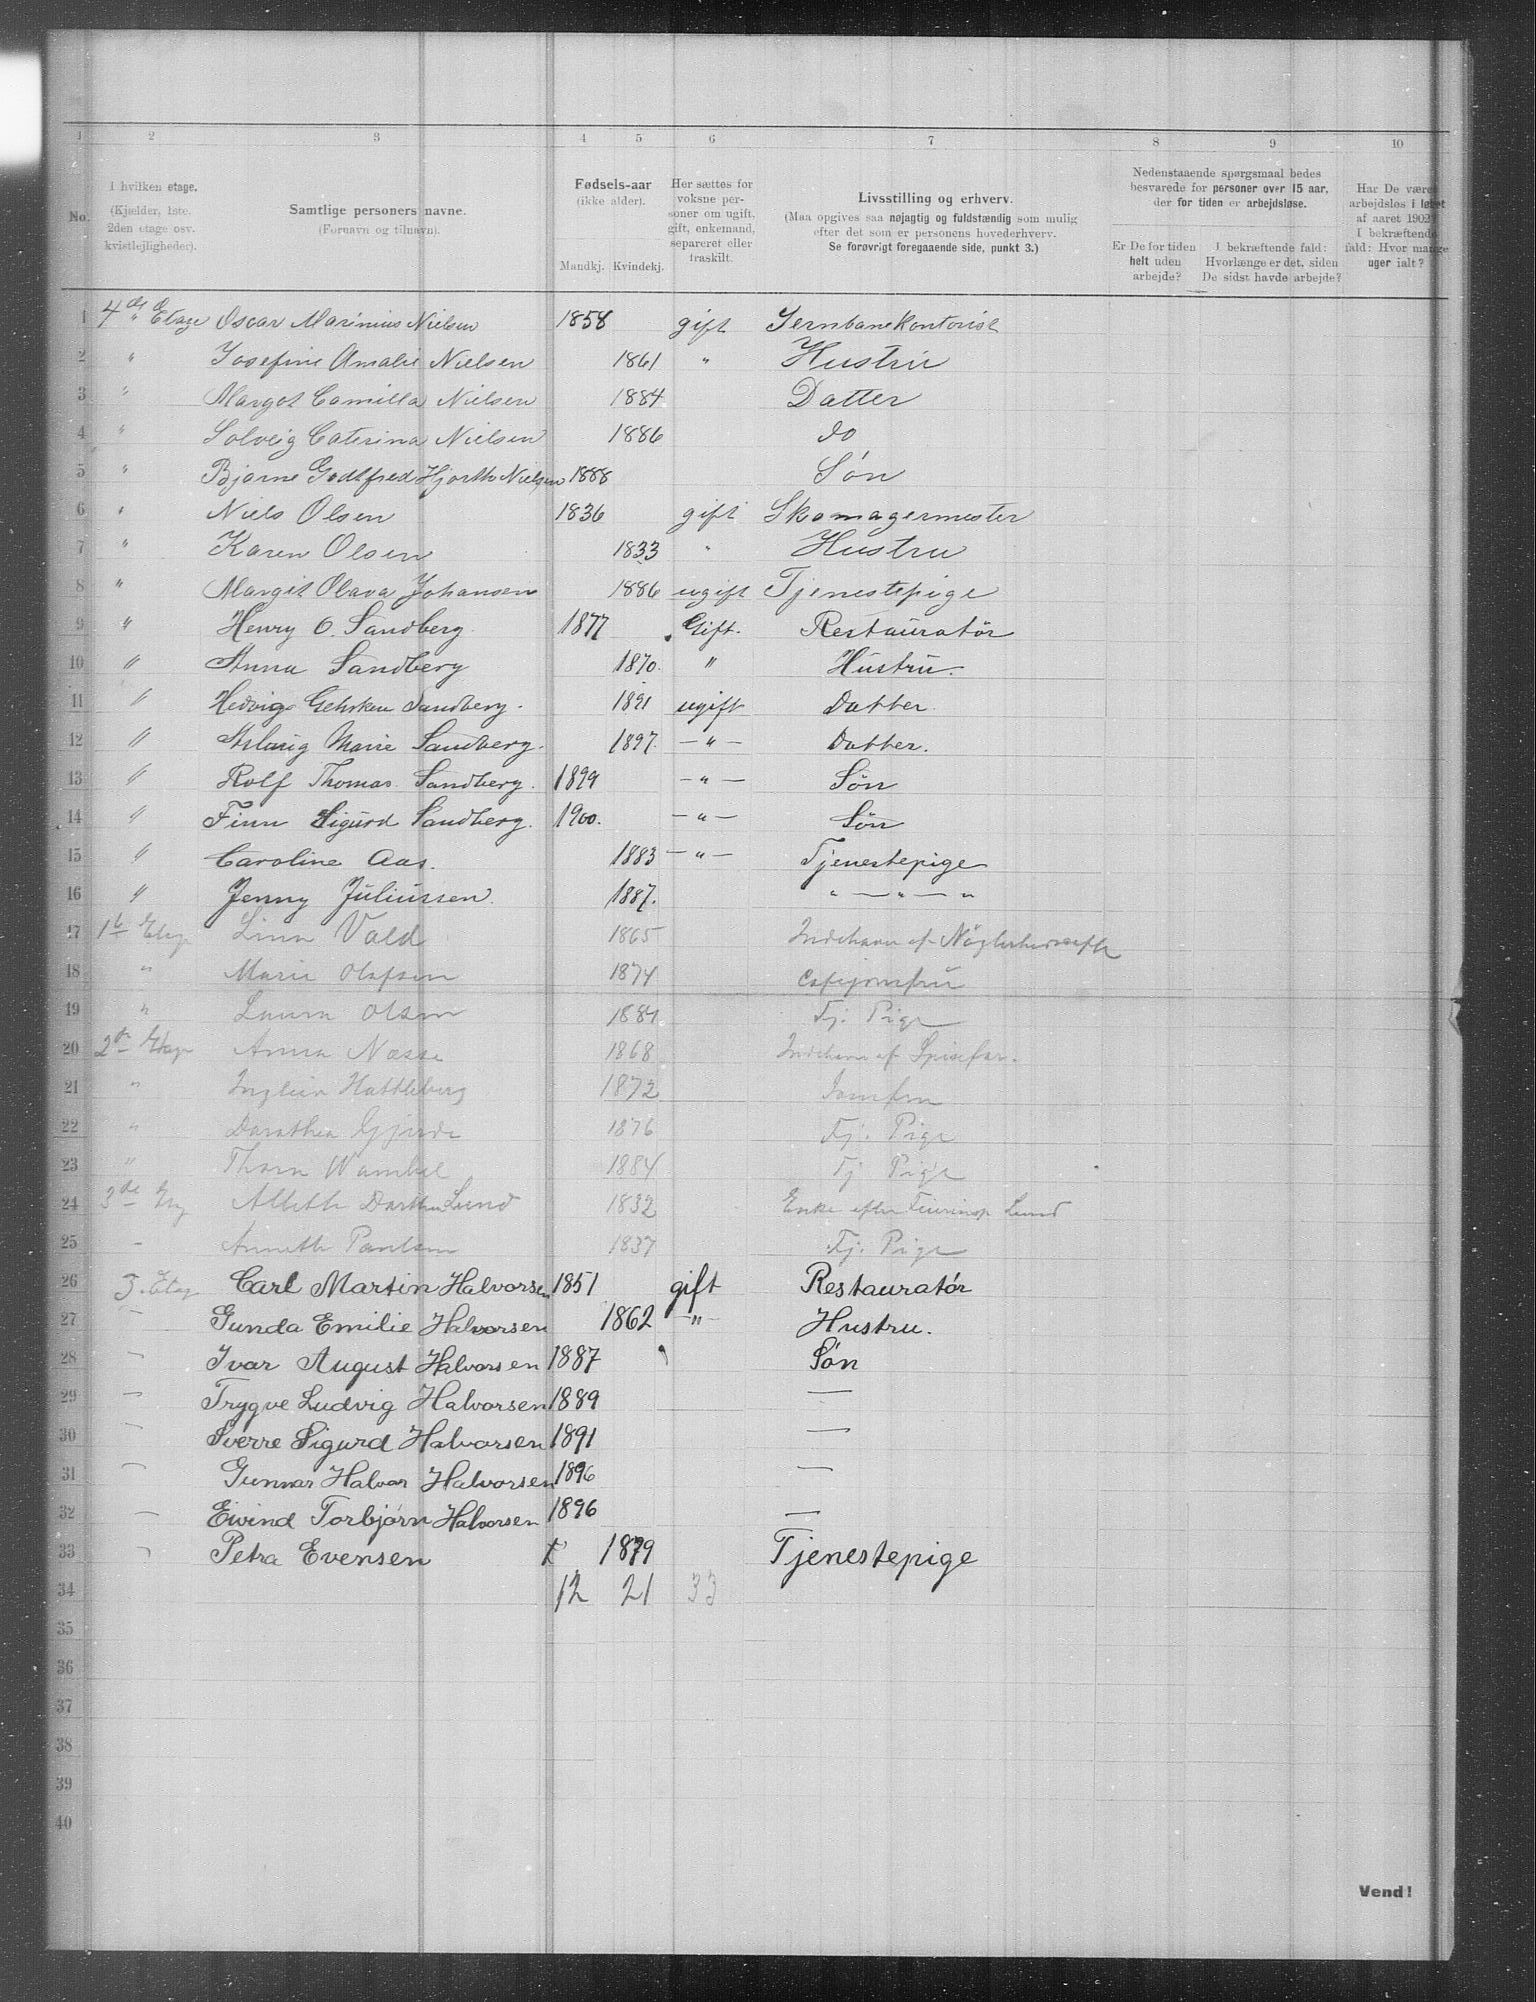 1 2 3 4 5 6 7 8 9 10
No.
I hvilken etage.
(Kjælder, 1ste.
2den etage osv.
kvistlejligheder).
Samtlige personers navne.
(Fornavn og tilnavn).
Fødsels-aar
(ikke alder).
Mandkj. Kvindekj.
Her sættes for
voksne per-
soner om ugift,
gift, enkemand,
separeret eller
fraskilt.
Livsstilling og erhverv.
(Maa opgives saa nøjagtig og fuldstændig som mulig
efter det som er personens hovederhverv.
Se forøvrigt foregaaende side, punkt 3.)
Nedenstaaende spørgsmaal bedes
besvarede for personer over 15 aar,
der for tiden er arbejdsløse.
Er De for tiden
helt uden
arbejde?
I bekræftende fald:
Hvorlænge er det, siden
De sidst havde arbejde?
Har De været
arbejdsløs i løbet
af aaret 1902?
I bekræftende
fald: Hvor mange
uger ialt?
1 4de Etage Oscar Marinius Nielsen 1858 gift Jernbanekontorist
2 " Josefine Amalie Nielsen 1861 " Hustru
3 " Margot Camilla Nielsen 1884 Datter
4 " Solveig Caterina Nielsen 1886 do
5 " Bjarne Godtfred Hjorth Nielsen 1888 Søn
6 " Niels Olsen 1836 gift Skomagermester
7 " Karen Olsen 1833 " Hustru
8 " Margit Olava Johansen 1886 ugift Tjenestepige
9 " Henry O. Sandberg 1877 Gift. Restauratør
10 " Anna Sandberg 1870. " Hustru.
11 " Hedvig Sandberg. 1891 ugift Datter.
12 " Aslaug Marie Sandberg. 1897. — " — Datter.
13 " Rolf Thomas Sandberg. 1899 — " — Søn
14 " Finn Sigurd Sandberg. 1900. — " — Søn
15 " Caroline Aas. 1883 — " — Tjenestepige
16 " Jenny Juliussen. 1887. " — " — "
17 1te Etage Linn Vold 1865 Indehaver af
18 " Marie Olafsen 1874 Cafejomfru
19 " Laura Olsen 1884 Tj. Pige
20 2den Etage Anna Næsse 1868 Indehaver af Spisefor.
21 " Hattleberg 1872 Jomfru
22 " Dorothea Gjerde 1876 Tj. Pige
23 " Thora 1884 Tj Pige
24 3de Etg Alleth Dorthea Lund 1832 Enke efter Lund
25 - Anneth Paulsen 1837 Tj. Pige
26 3. Etag Carl Martin Halvorsen 1851 gift Restauratør
27 — Gunda Emilie Halvorsen 1862 — " — Hustru.
28 — Ivar August Halvorsen 1887 Søn
29 — Trygve Ludvig Halvorsen 1889 —
30 — Sverre Sigurd Halvorsen 1891 —
31 — Gunnar Halvor Halvorsen 1896 —
32 — Eivind Torbjørn Halvorsen 1896 —
33 — Petra Evensen t 1879 Tjenestepige
34 12 21 33
35
36
37
38
39
40
Vend!